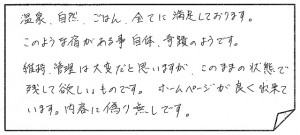 温泉、自然、ごはん、全てに満足しております。
このような宿がある事自体、奇蹟のようです。
維持、管理は大変だと思いますが、このままの状態で
残して欲しいものです。ホームページが良く出来て
います。内容に偽り無しです。